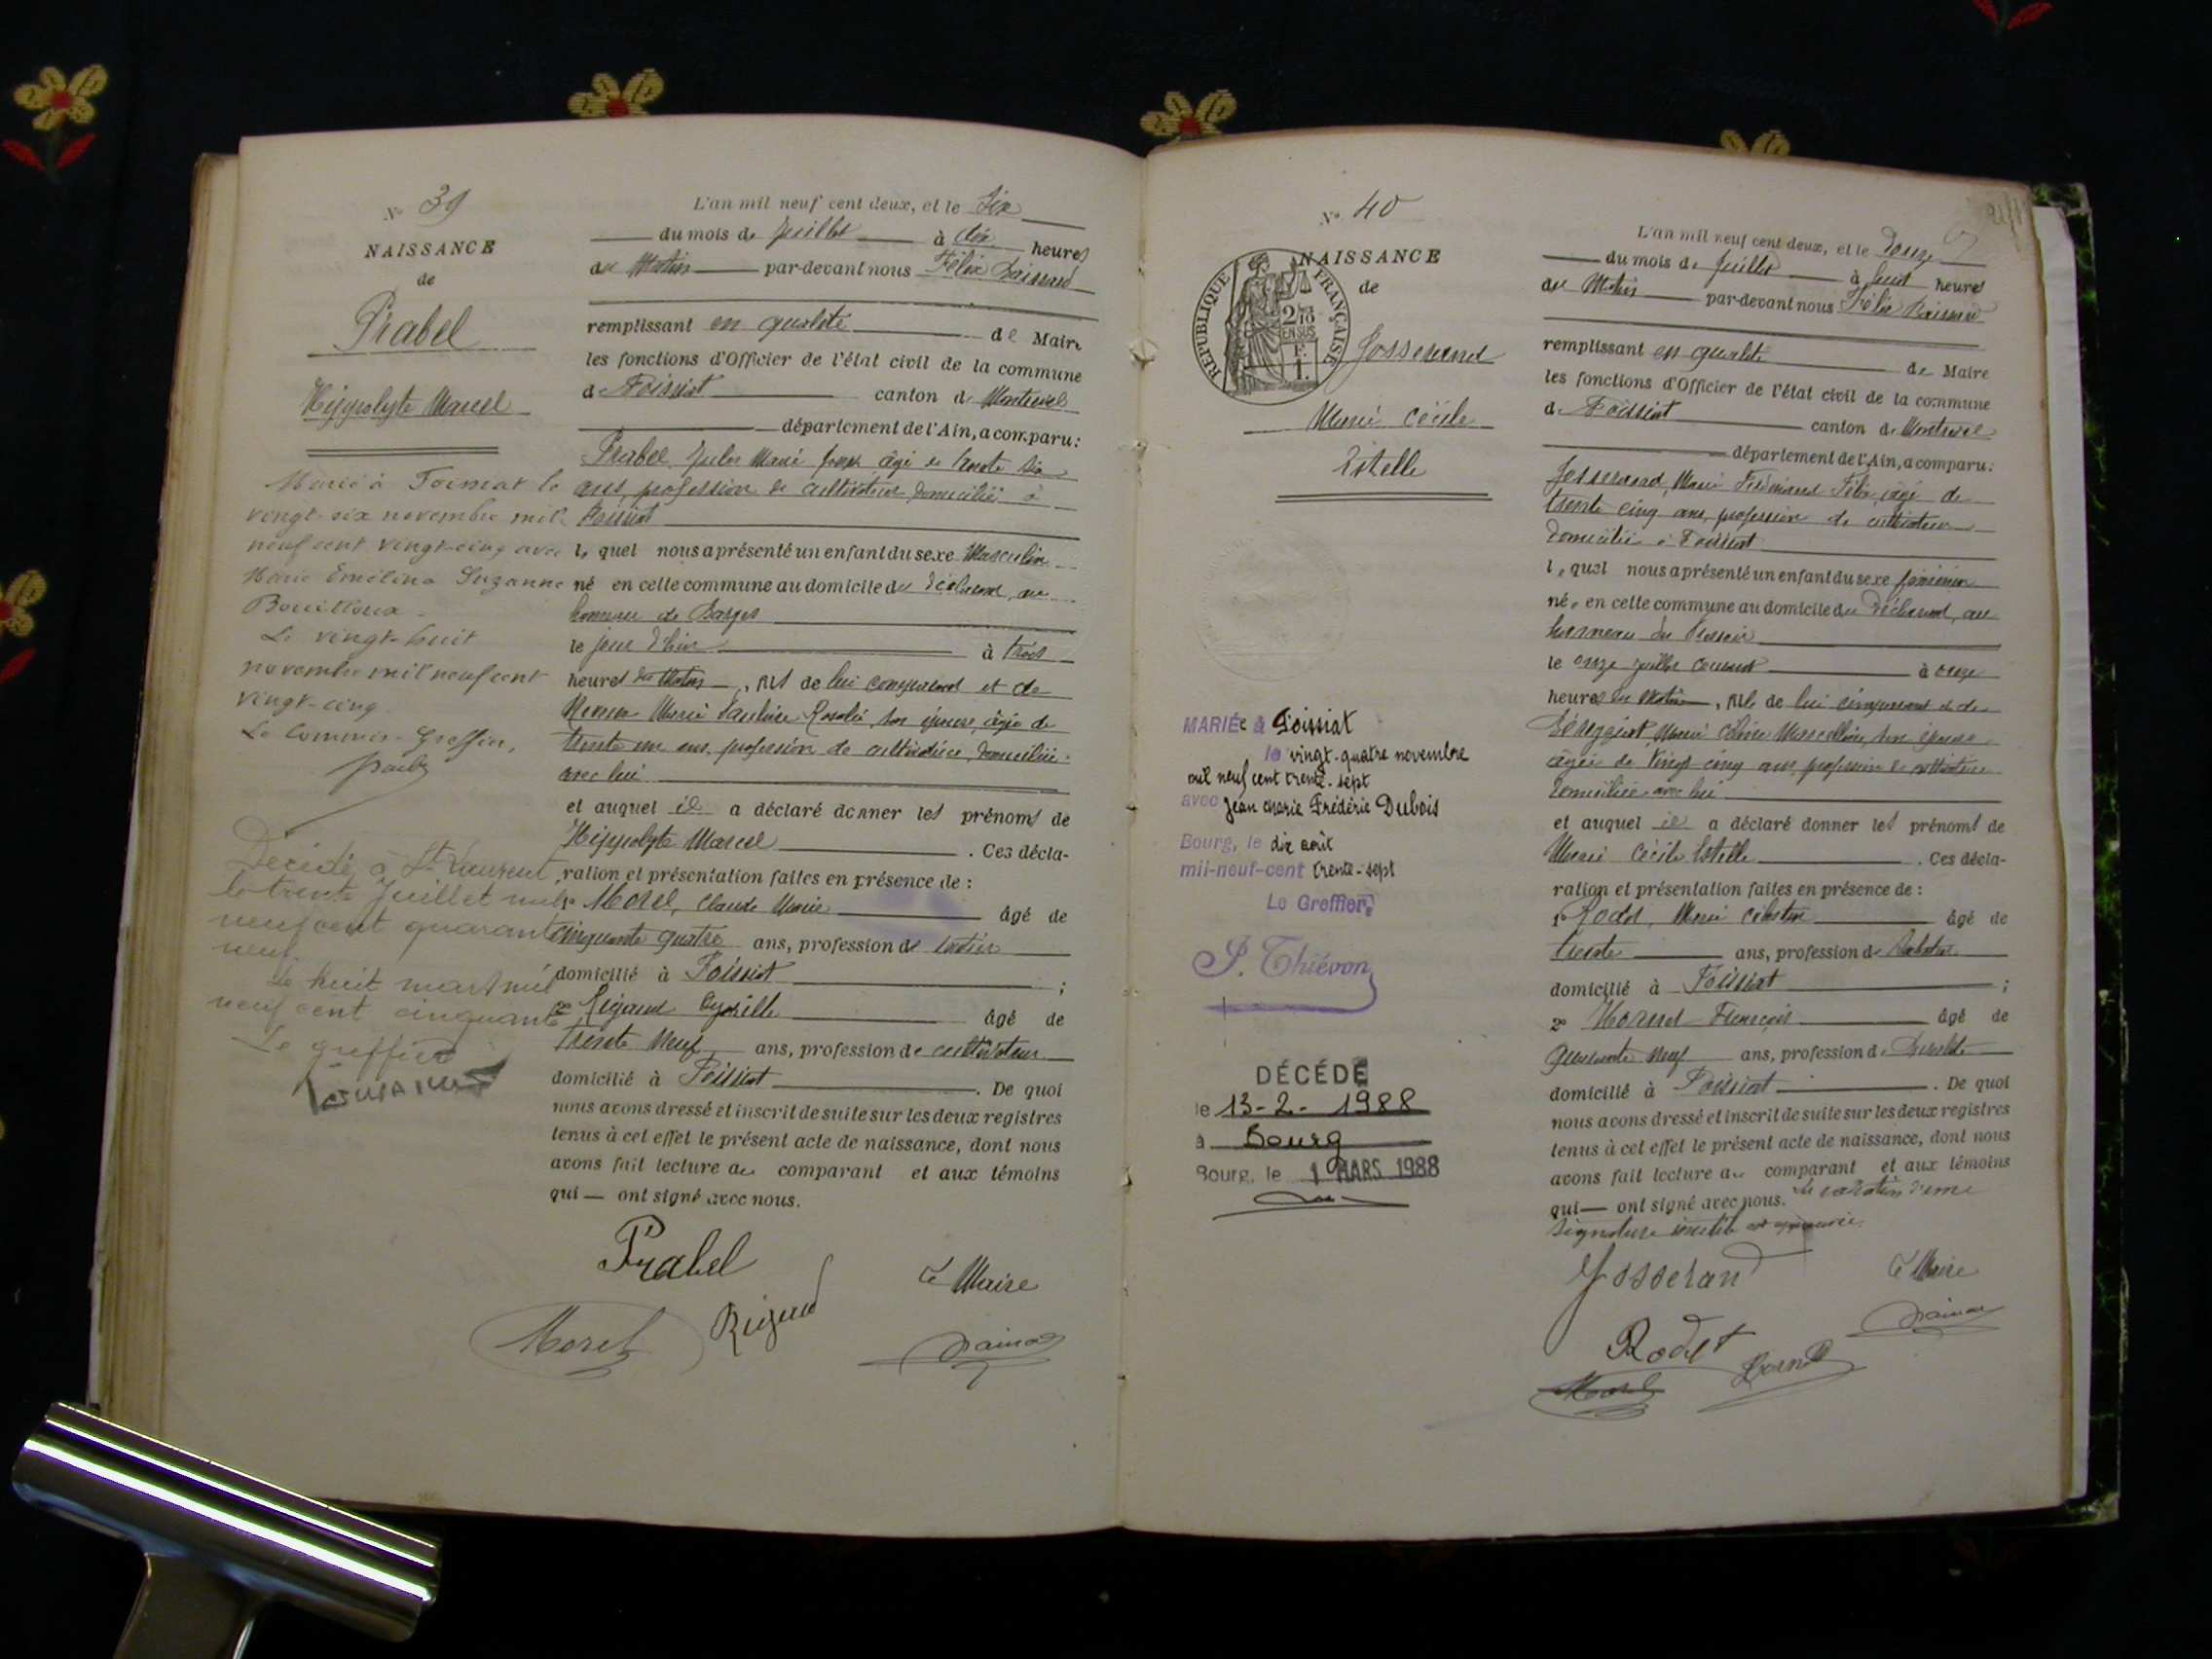 N° 39
NAISSANCE
de
Prabel
Hippolyte Marcel
Marié à Jornat le
vingt-six novembre mil
neuf cent vingt-cinq avec
Marie Emélina Suzanne
Bouilloux.
Le vingt-huit
novembre mil neuf cent
vingt-cinq
Le Commis-Greffier,
Décédé à St Laurent
le trente Juillet mil
neuf cent quarante
neuf.
Le huit mars mil
neuf cent cinquante
Le greffier
L'an mil neuf cent deux, et le Six
du mois de Juillet à dix heures
du Matin par-devant nous Félix
remplissant en qualité de Maire
les fonctions d'Officier de l'état civil de la commune
de Foissiat canton de Montrevel
département de l'Ain, a comparu :
Prabel Jules Marie Joseph âgé de trente six
ans, profession de cultivateur domicilié à
Foissiat
lequel nous a présenté un enfant du sexe Masculin
né en cette commune au domicile du déclarant, au
hameau de Barges
le jour d'hier à trois
heures du Matin, fils de lui comparant et de
Marie Pauline Rosalie, son épouse, âgée de
trente un ans, profession de cultivatrice, domiciliée
avec lui
et auquel il a déclaré donner les prénoms de
Hippolyte Marcel. Ces décla-
ration et présentation faites en présence de :
1° Morel, Claude Marie âgé de
cinquante quatre ans, profession de rentier
domicilié à Foissiat ;
2° Rigaud Cyrille âgé de
trente neuf ans, profession de cultivateur
domicilié à Foissiat. De quoi
nous avons dressé et inscrit de suite sur les deux registres
tenus à cet effet le présent acte de naissance, dont nous
avons fait lecture au comparant et aux témoins
qui — ont signé avec nous.
Prabel
Le Maire
Morel Rigaud
N° 40
NAISSANCE
de
REPUBLIQUE FRANÇAISE
2/10
EN SUS
F.
1.
Josserand
Marie Cécile
Estelle
MARIÉe à Foissiat
le vingt-quatre novembre
mil neuf cent trente-sept
avec Jean Marie Frédéric Dubois
Bourg, le dix août
mil-neuf-cent trente-sept
Le Greffier,
J. Thiévon
DÉCÉDÉ
le 13-2-1988
à Bourg
Bourg, le 1 MARS 1988
L'an mil neuf cent deux, et le Douze
du mois de Juillet à huit heures
du Matin par-devant nous Félix
remplissant en qualité de Maire
les fonctions d'Officier de l'état civil de la commune
de Foissiat canton de Montrevel
département de l'Ain, a comparu :
Josserand, Marie Ferdinand Félix, âgé de
trente cinq ans, profession de cultivateur
domicilié à Foissiat
lequel nous a présenté un enfant du sexe féminin
née en cette commune au domicile du déclarant, au
hameau du
le onze juillet courant à onze
heures du Matin, fille de lui comparant et de
Marie Marcelline, son épouse
âgée de Vingt cinq ans, profession de cultivatrice
domiciliée avec lui
et auquel il a déclaré donner les prénoms de
Marie Cécile Estelle. Ces décla-
ration et présentation faites en présence de :
1° Rodet, Marie Célestin âgé de
trente ans, profession de
domicilié à Foissiat ;
2° François âgé de
quarante neuf ans, profession de
domicilié à Foissiat. De quoi
nous avons dressé et inscrit de suite sur les deux registres
tenus à cet effet le présent acte de naissance, dont nous
avons fait lecture au comparant et aux témoins
qui — ont signé avec nous. La radiation d'une
signature inutile est approuvée.
Josseran
Le Maire
Rodet
Morel